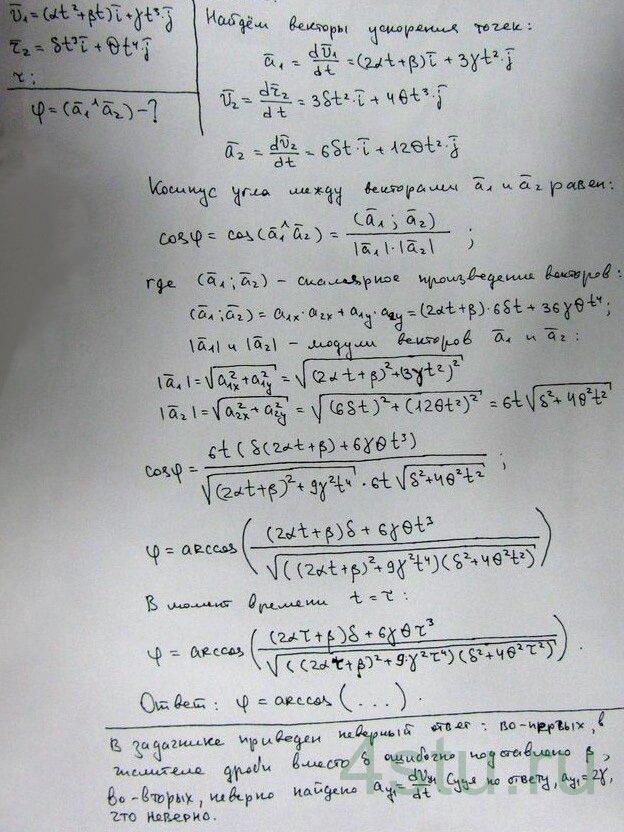 v̄₁=(αt²+βt)ī+γt³·j̄
r̄₂=δt³ī+θt⁴·j̄
τ;
φ=(ā₁^ā₂)-?
Найдём векторы ускорения точек:
ā₁=dv̄₁/dt=(2αt+β)ī+3γt²·j̄
v̄₂=dr̄₂/dt=3δt²·ī+4θt³·j̄
ā₂=dv̄₂/dt=6δt·ī+12θt²·j̄
Косинус угла между векторами ā₁ и ā₂ равен:
cosφ=cos(ā₁^ā₂)=(ā₁;ā₂)/(|ā₁|·|ā₂|);
где (ā₁;ā₂) - скалярное произведение векторов:
(ā₁;ā₂)=a₁ₓ·a₂ₓ+a₁y·a₂y=(2αt+β)·6δt+36γθt⁴;
|ā₁| и |ā₂| - модули векторов ā₁ и ā₂:
|ā₁|=√(a₁ₓ²+a₁y²)=√((2αt+β)²+(3γt²)²)
|ā₂|=√(a₂ₓ²+a₂y²)=√((6δt)²+(12θt²)²)=6t√(δ²+4θ²t²)
cosφ=6t(δ(2αt+β)+6γθt³)/(√((2αt+β)²+9γ²t⁴)·6t√(δ²+4θ²t²));
φ=arccos((2αt+β)δ+6γθt³/√(((2αt+β)²+9γ²t⁴)(δ²+4θ²t²)))
В момент времени t=τ:
φ=arccos((2ατ+β)δ+6γθτ³/√(((2ατ+β)²+9·γ²τ⁴)(δ²+4θ²τ²))).
Ответ: φ=arccos(...).
В задачнике приведен неверный ответ: во-первых, в
числителе дроби вместо δ ошибочно подставлено β,
во-вторых, неверно найдено ay₁=dVy₁/dt. Судя по ответу, ay₁=2γ,
что неверно.
4stu.ru